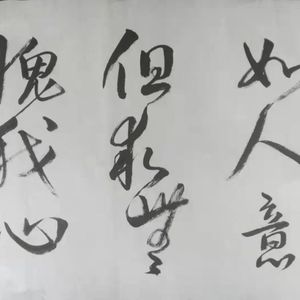 如人意
但求無
愧我心